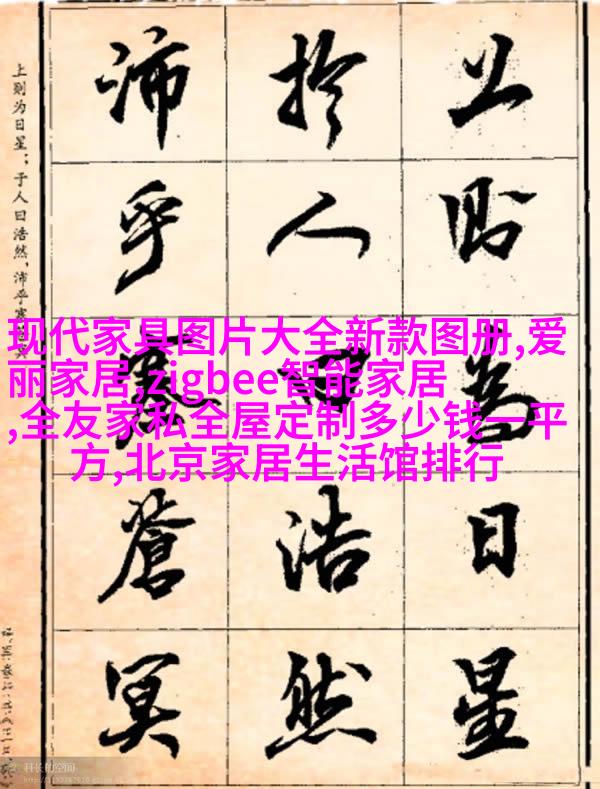 上則為日星
扵人曰浩然
沛乎塞蒼冥
上则为日星；于人曰浩然，沛乎塞苍冥
现代家具图片大全新款图册,爱
丽家居,zigbee智能家居
,全友家私全屋定制多少钱一平
方,北京家居生活馆排行
科长的空间